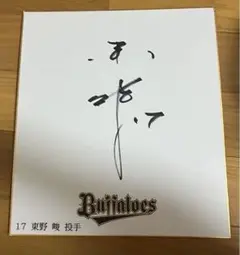 17
Buffaloes
17 東野 峻 投手